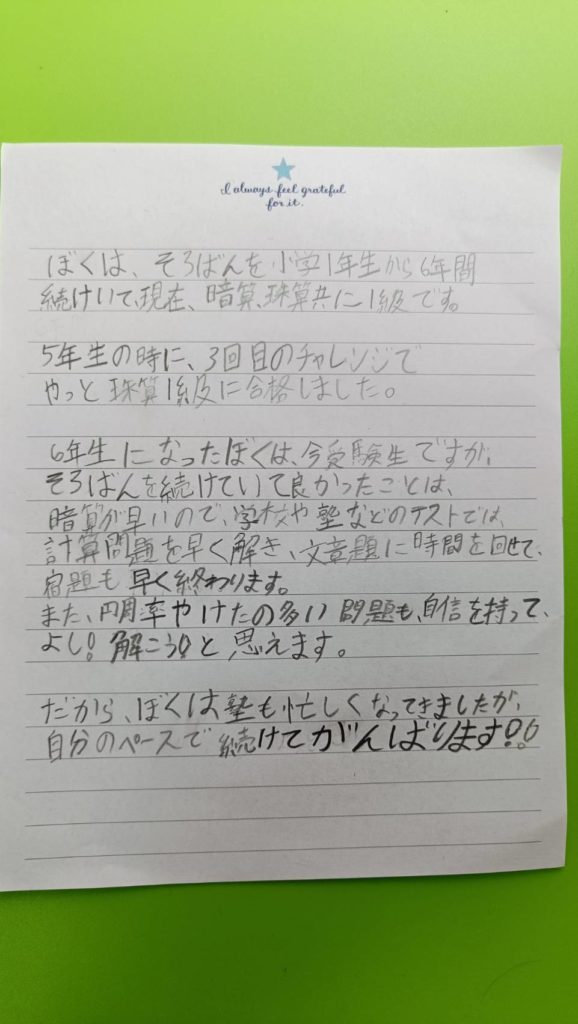 I always feel grateful
for it.
ぼくは、そろばんを小学1年生から6年間
続けいて、現在、暗算、珠算共に1級です。
5年生の時に、3回目のチャレンジで
やっと珠算1級に合格しました。
6年生になったぼくは、今受験生ですが、
そろばんを続けていて良かったことは、
暗算が早いので、学校や塾などのテストでは、
計算問題を早く解き、文章題に時間を回せて、
宿題も早く終わります。
また、円周率やけたの多い問題も、自信を持って、
よし!解こう!と思えます。
だから、ぼくは塾も忙しくなってきましたが、
自分のペースで続けてがんばります!!